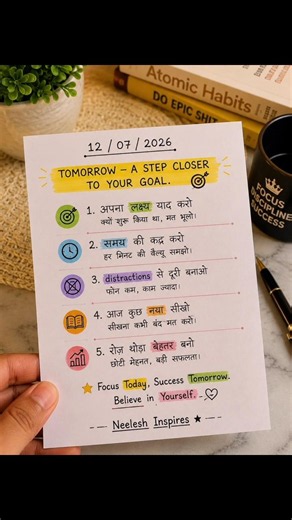 Atomic Habits
DO EPIC SHIT
12 / 07 / 2026
TOMORROW – A STEP CLOSER
TO YOUR GOAL.
1. अपना लक्ष्य याद करो
क्यों शुरू किया था, मत भूलो।
2. समय की कद्र करो
हर मिनट की वैल्यू समझो।
3. distractions से दूरी बनाओ
फोन कम, काम ज्यादा।
4. आज कुछ नया सीखो
सीखना कभी बंद मत करो।
5. रोज़ थोड़ा बेहतर बनो
छोटी मेहनत, बड़ी सफलता।
Focus Today, Success Tomorrow.
Believe in Yourself. -
-- Neelesh Inspires ★ --
FOCUS
DISCIPLINE
SUCCESS